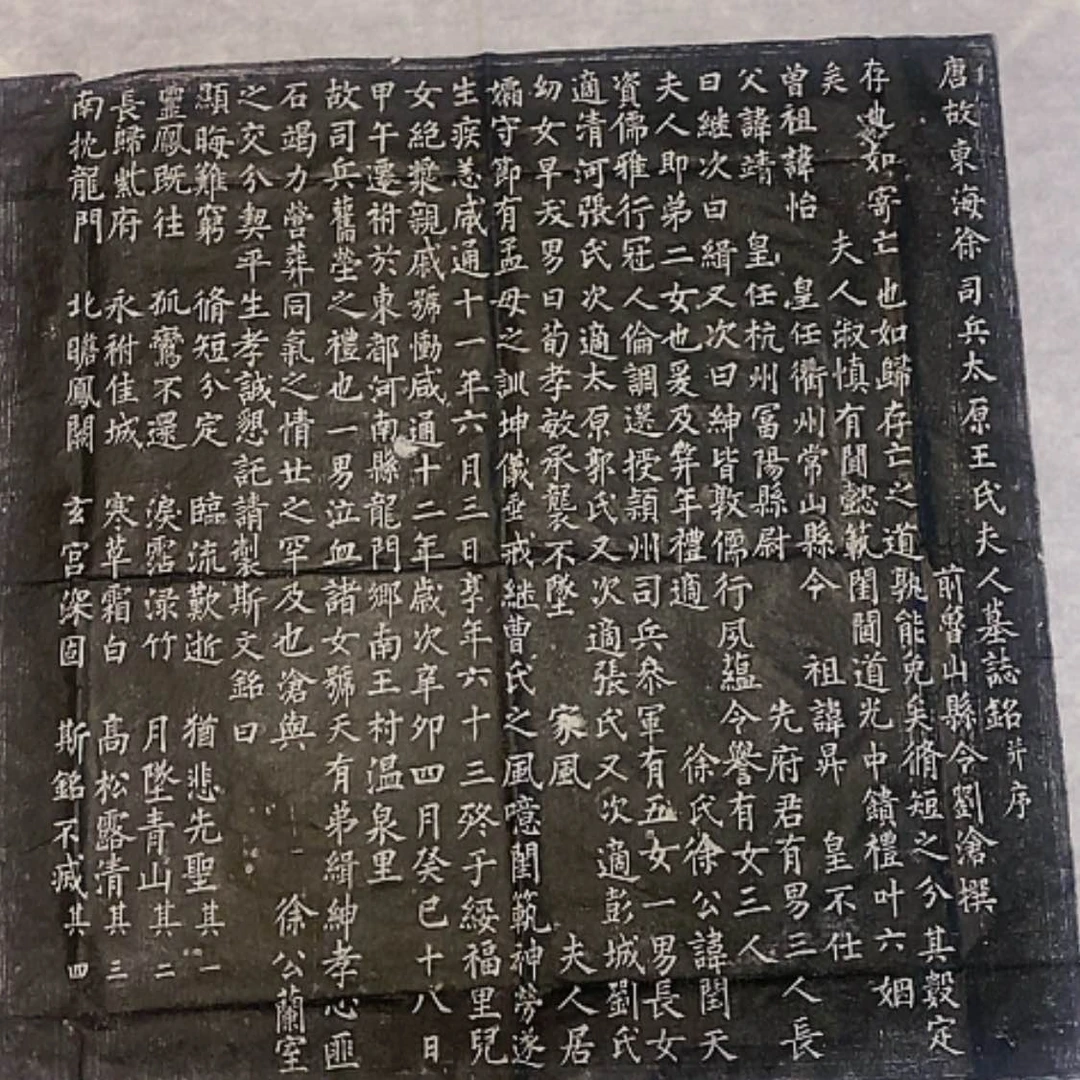 唐故東海徐司兵太原王氏夫人墓誌銘并序
前魯山縣令劉滄撰
存也如寄亡也如歸存亡之道孰能免矣脩短之分其數定
矣 夫人淑慎有聞懿範閨閫道光中饋禮叶六姻
曾祖諱怡 皇任衢州常山縣令 祖諱昇 皇不仕
父諱靖 皇任杭州富陽縣尉 先府君有男三人長
曰継次曰緝又次曰紳皆敦儒行夙蘊令譽有女三人
夫人即弟二女也爰及笄年禮適 徐氏徐公諱閏天
資儒雅行冠人倫調選授潁州司兵叅軍有五女一男長女
適清河張氏次適太原郭氏又次適張氏又次適彭城劉氏
幼女早歿男曰荀孝敏承襲不墜 家風 夫人居
孀守節有孟母之訓坤儀垂戒継曹氏之風噫閨範神勞遂
生疾恙咸通十一年六月三日享年六十三歿于綏福里兒
女絕漿親戚號慟咸通十二年歲次辛卯四月癸巳十八日
甲午遷祔於東都河南縣龍門鄉南王村温泉里
故司兵舊塋之禮也一男泣血諸女號天有弟緝紳孝心匪
石竭力營葬同氣之情世之罕及也滄與 徐公蘭室
之交分契平生孝誠懇託請製斯文銘曰
顯晦難窮 脩短分定 臨流歎逝 猶悲先聖其一
靈鳳既往 孤鸞不還 淚霑淥竹 月墜青山其二
長歸紫府 永祔佳城 寒草霜白 高松露清其三
南枕龍門 北瞻鳳闕 玄宮深固 斯銘不滅其四